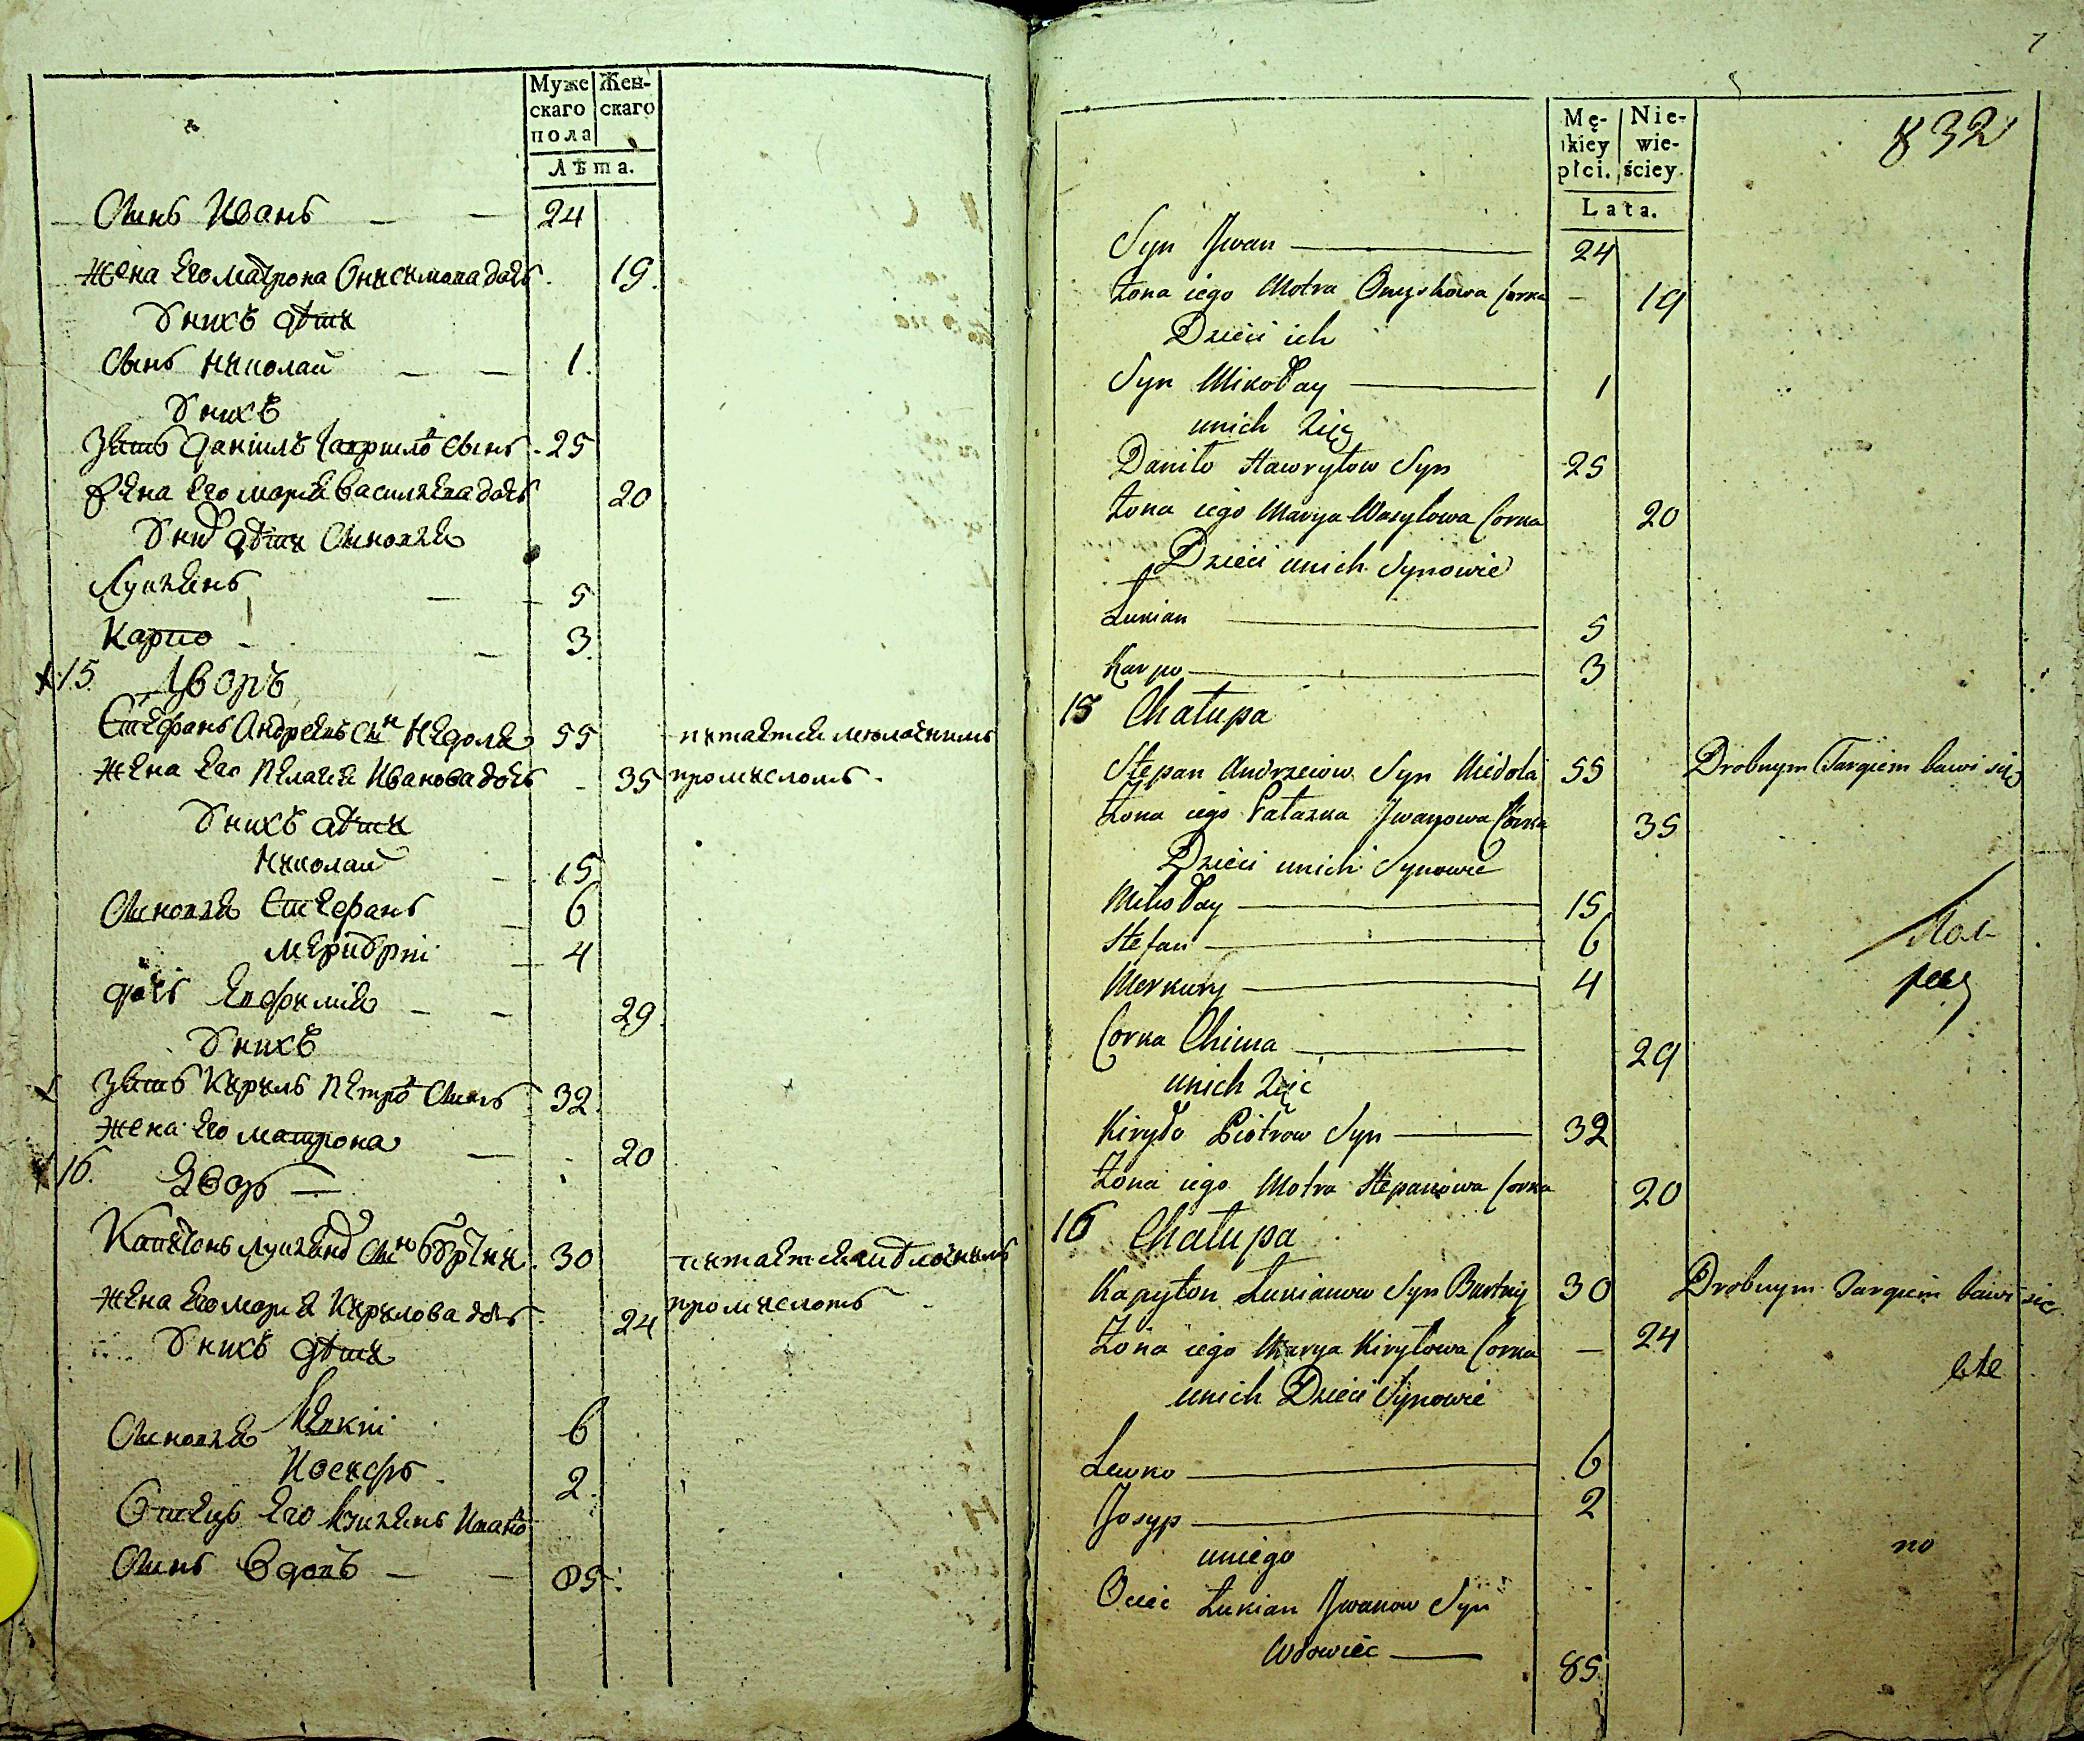 Муже
скаго
пола
Жен-
скаго
Лѣта.
Сынъ Иванъ — — 24
Жена его Матрона Онисимова дочь 19.
У нихъ дѣти
Сынъ Николай — — 1.
У нихъ
Зять Данiилъ Гаврилов сынъ 25
Жена его Мария Васильева дочь 20
У них дѣти Сыновья
Лукьянъ — — 5
Карпо — — 3.
15. Дворъ
Стефанъ Андреевъ сын Недоля 55 питается мелочнымъ
Жена его Пелагия Иванова дочь - 35 промысломъ.
У нихъ дѣти
Николай — 15
Сыновья Стефанъ — 6
Меркурiй — 4
дочь Евфимiя — — 29.
У нихъ
Зять Кирилъ Петров Сынъ 32.
Жена его Матрона — 20
16. Двор —
Капитонъ Лукьянов Сын 30 питается мелочнымъ
Жена его Мария Кирилова дочь 24 промысломъ
У нихъ дѣти
Левкiй 6
Сыновья
Иосифъ 2.
Отецъ его Лукьянъ Иванов
Сынъ Вдовъ — — 85.
7
832
Mę-
skiey
płci.
Nie-
wie-
ściey.
Lata.
Syn Jwan — 24
Żona iego Motra Onyskowa Corka — 19
Dzieci ich
Syn Mikołay — 1
unich Zięć
Daniło Hawryłow Syn 25
Żona iego Marya Wasylowa Corka 20
Dzieci unich Synowie
Łukian — 5
Karpo — 3
15 Chałupa
Stepan Andrzeiow Syn Niedola 55 Drobnym Targiem bawi się
Żona iego Pałazka Jwanowa Corka 35
Dzieci unich Synowie
Mikołay — 15
Stefan — 6
Merkury — 4
Corka Chima — 29
unich Zięć
Kiryło Piotrow Syn — 32
Żona iego Motra Stepanowa Corka 20
16 Chałupa
Kapyton Łukianow Syn Burtny 30 Drobnym Targiem bawi się
Żona iego Marya Kiryłowa Corka — 24
unich Dzieci Synowie
Lewko — 6
Josyp — 2
uniego
Ociec Łukian Jwanow Syn
Wdowiec — 85
по